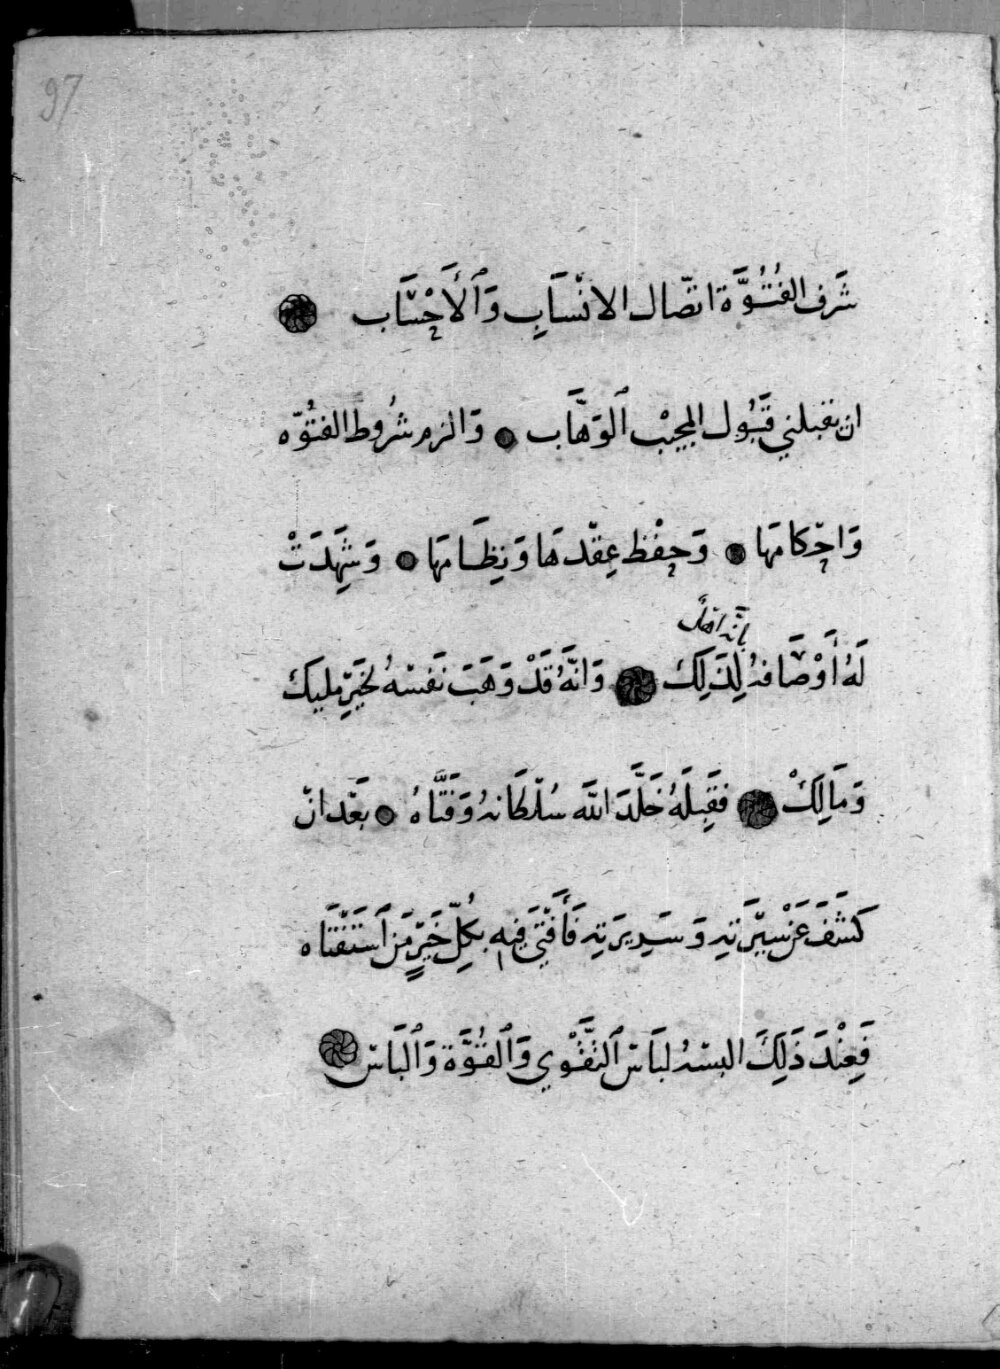 97
شَرَف الفُتُوَّة اتصّال الانْسَابِ وَٱلْأَحْسَاب
ان تقبلني قَبُول المجيْب ٱلوَهَّاب وَالزم شُرُوط الفتُوّه
وَاحْكامَها وَحِفْظ عِقْدَهَا وَنِظَامَها وَشَهِدَتْ
بانّه اهلٌ
لَهُ أَوْصَافهُ لِذَلِكَ وَانَّهُ قَدْ وَهَبَ نَفسَهُ لخَيْرِ مليك
وَمَالِكْ فقَبِلَهُ خَلَّدَ اللّه سُلْطَانهُ وَفَتَّاهُ بَعْد انْ
كَشَفَ عَنْ سِيْرَتهِ وَسَرِيرَتهِ فَأَفْتَى فِيهِ بكُلِّ خَيْرٍ مَن ٱسْتَفْتَاه
فَعِنْدَ ذَلِكَ البسَهُ لبَاسَ ٱلتَّقْوي وَٱلفتُوَّة وَٱلبَاسْ